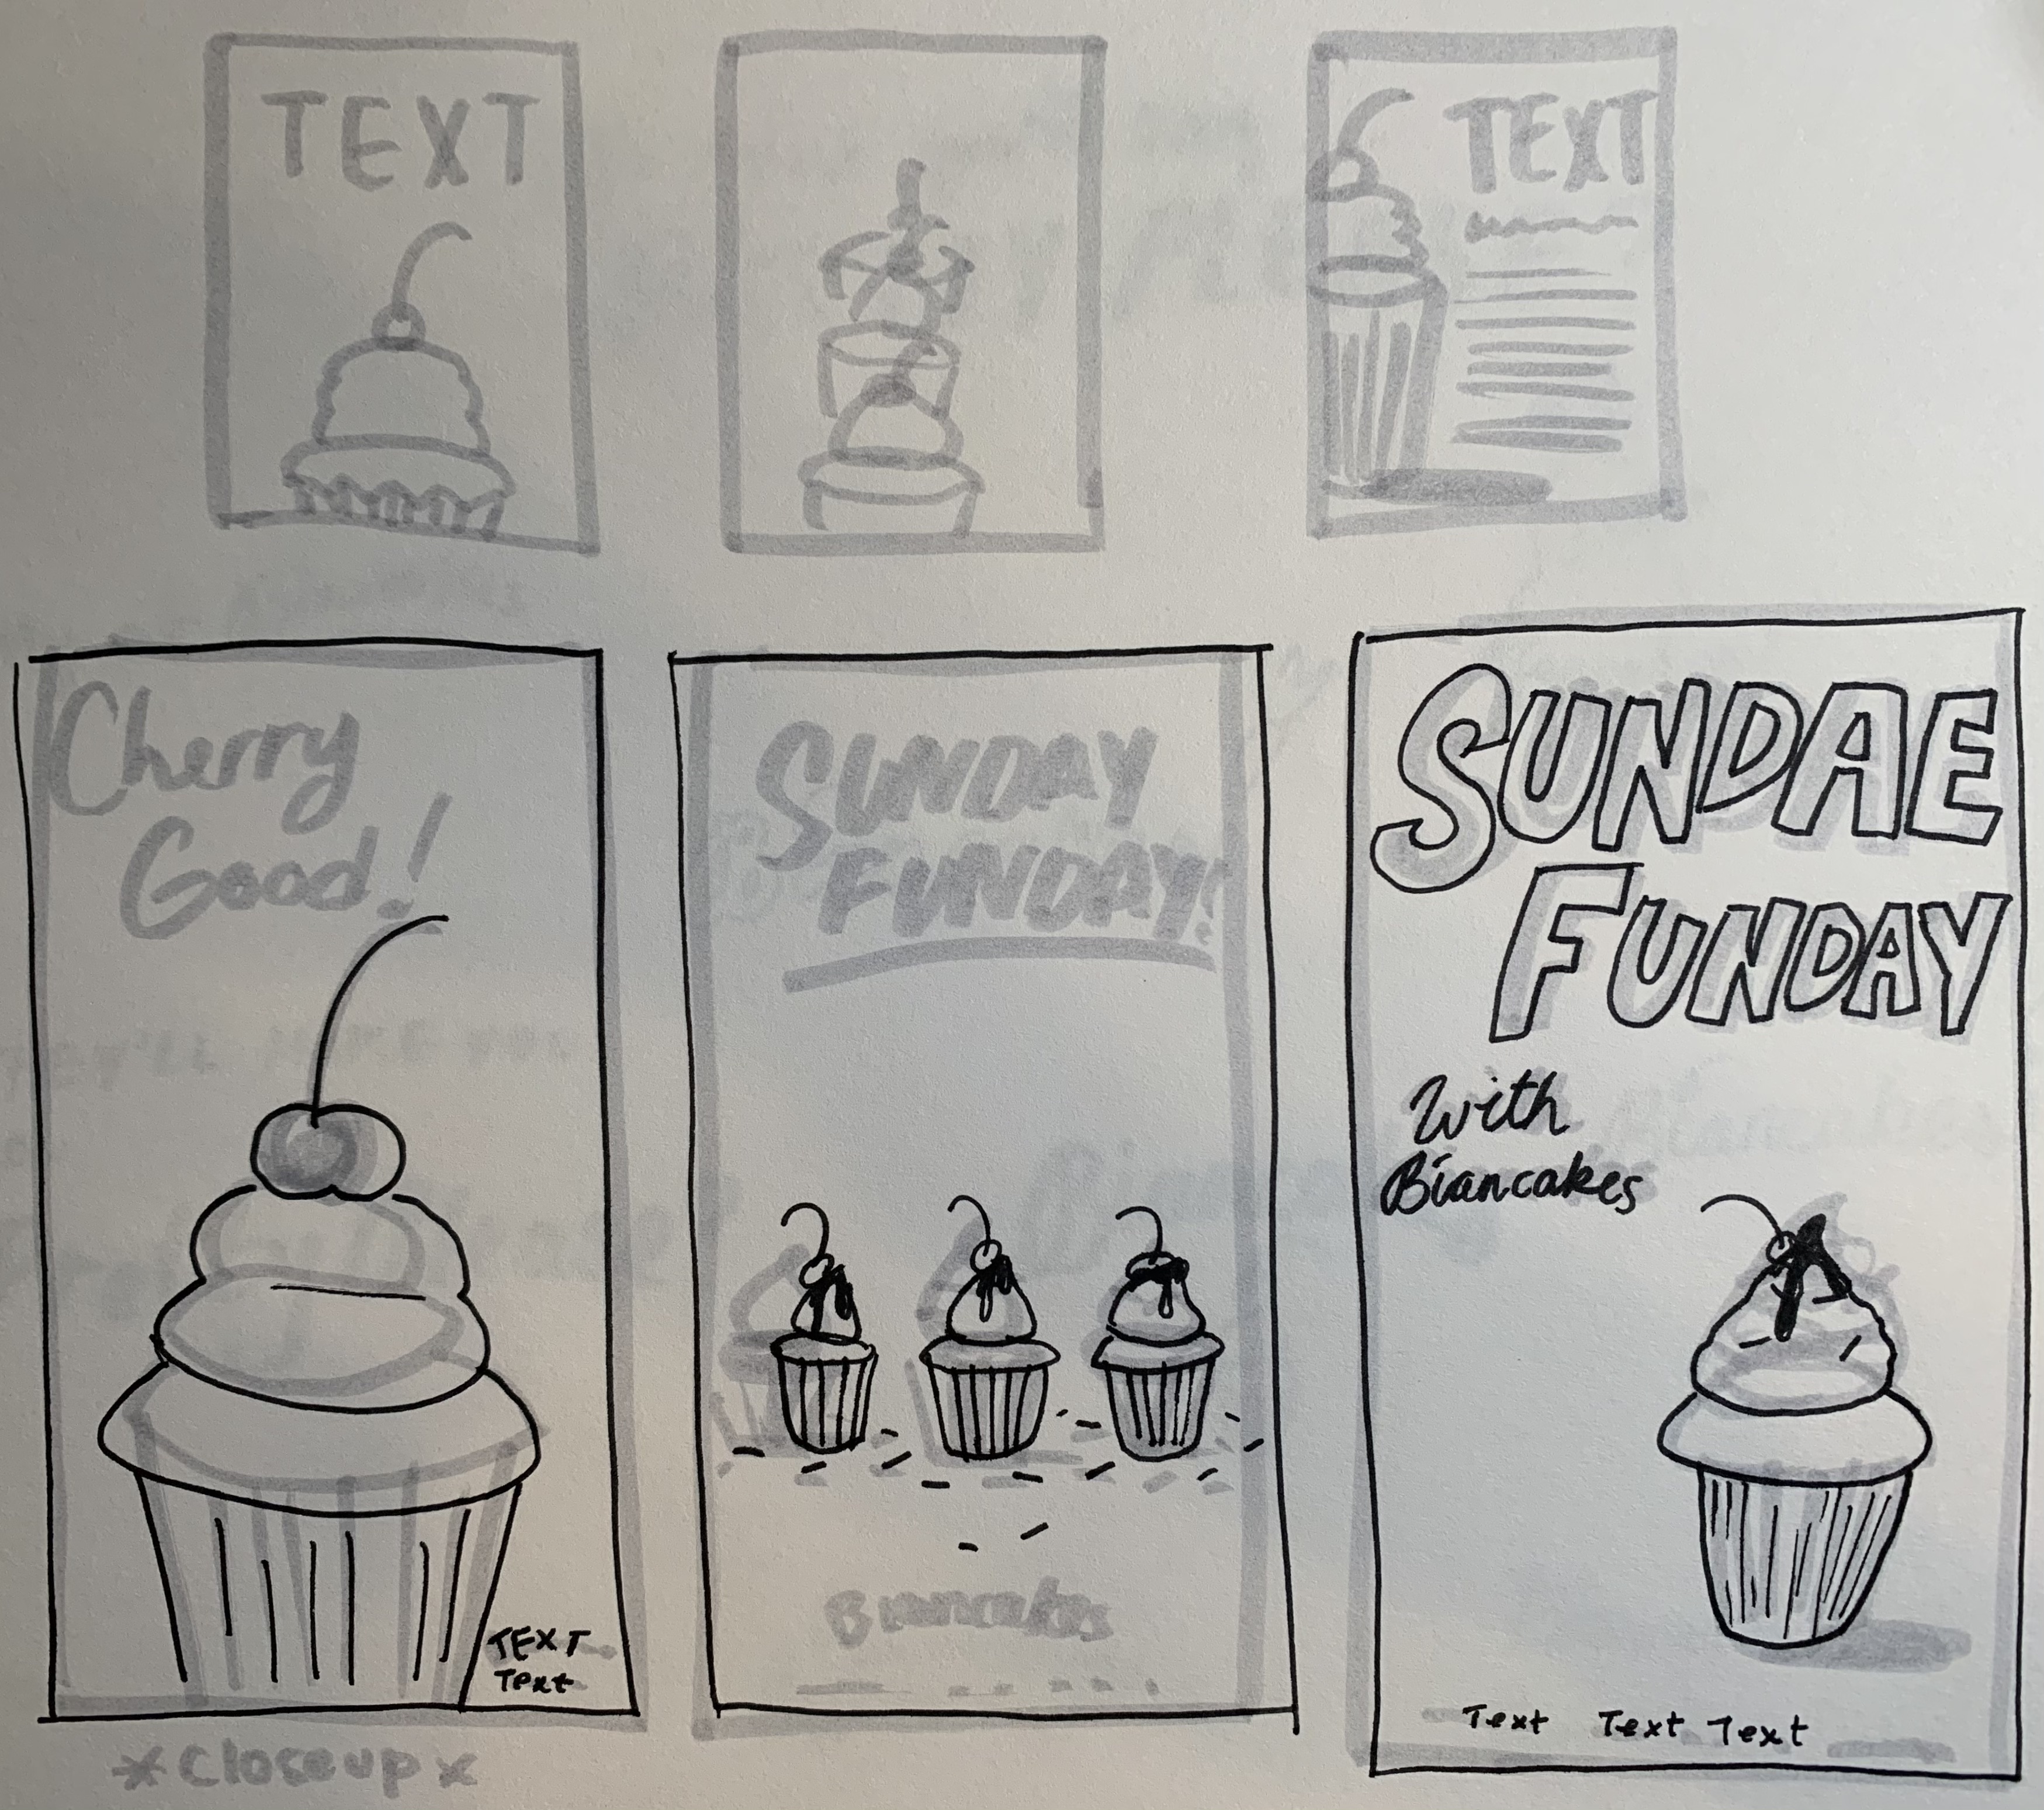 TEXT
TEXT
Cherry
Good!
TEXT
Text
*Closeup*
SUNDAY
FUNDAY!
Biancakes
SUNDAE
FUNDAY
With
Biancakes
Text Text Text